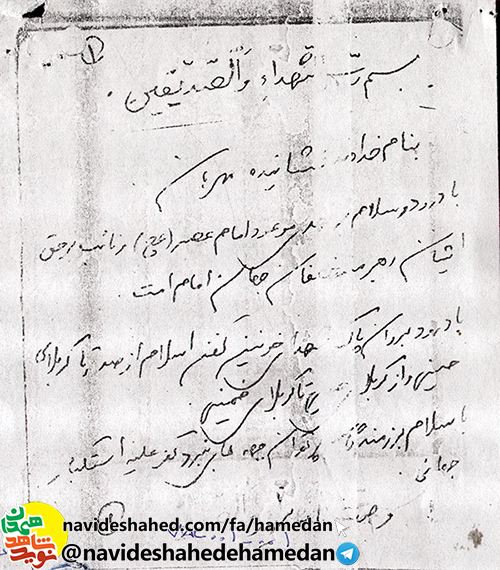 بسم رب الشهداء والصدیقین
بنام خداوند بخشاینده مهربان
با درود و سلام بر مهدی موعود امام عصر (عج) و نائب برحق
ایشان رهبر مستضعفان جهان امام امت
با درود بر روان پاک شهدای خونین کفن اسلام از صدر تا کربلای
حسینی و از کربلای تا کربلای خمینی
با سلام بر رزمندگان جبهه های نبرد کفر علیه استکبار
جهانی
navideshahed.com/fa/hamedan
@navideshahedehamedan
نوید شاهد همدان